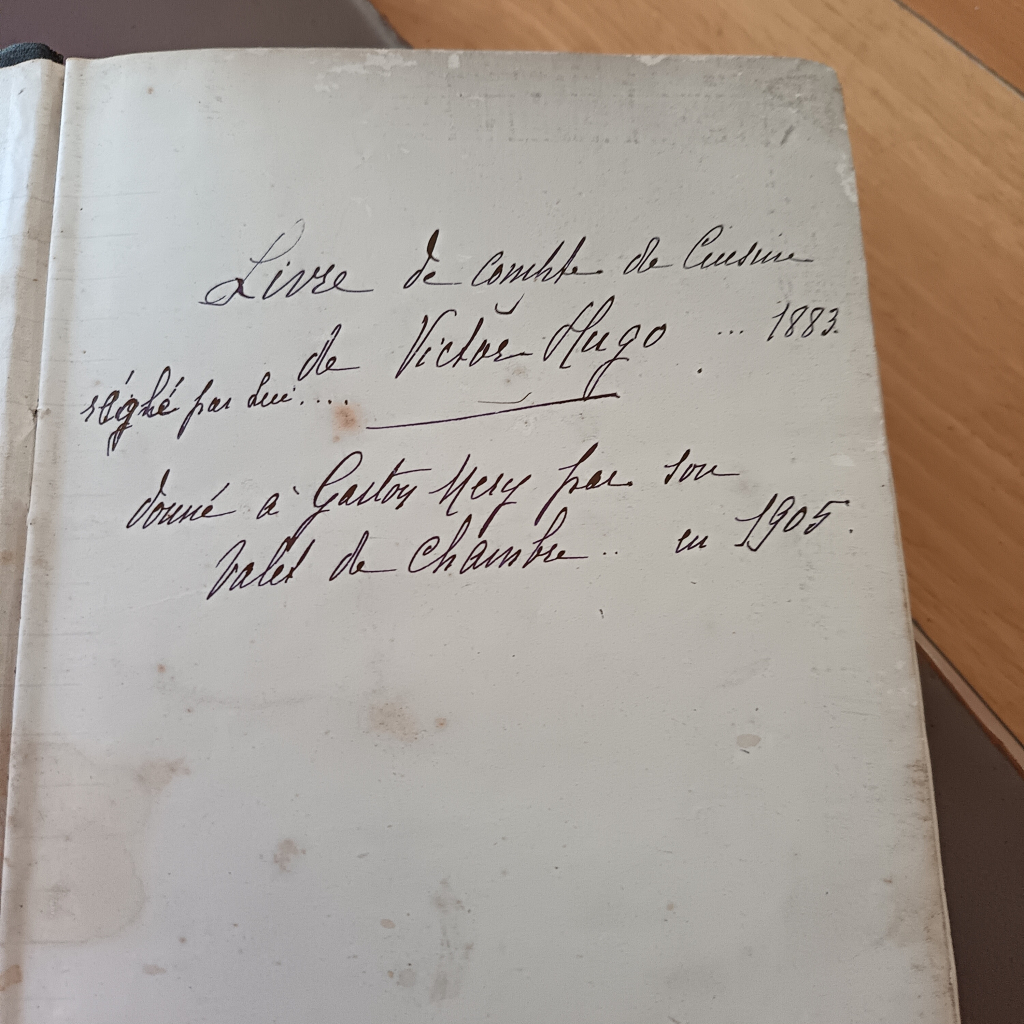 Livre de compte de Cuisine
de Victor Hugo ... 1883.
réglé par lui....
donné à Gaston Mery par son
Valet de chambre .. en 1905.